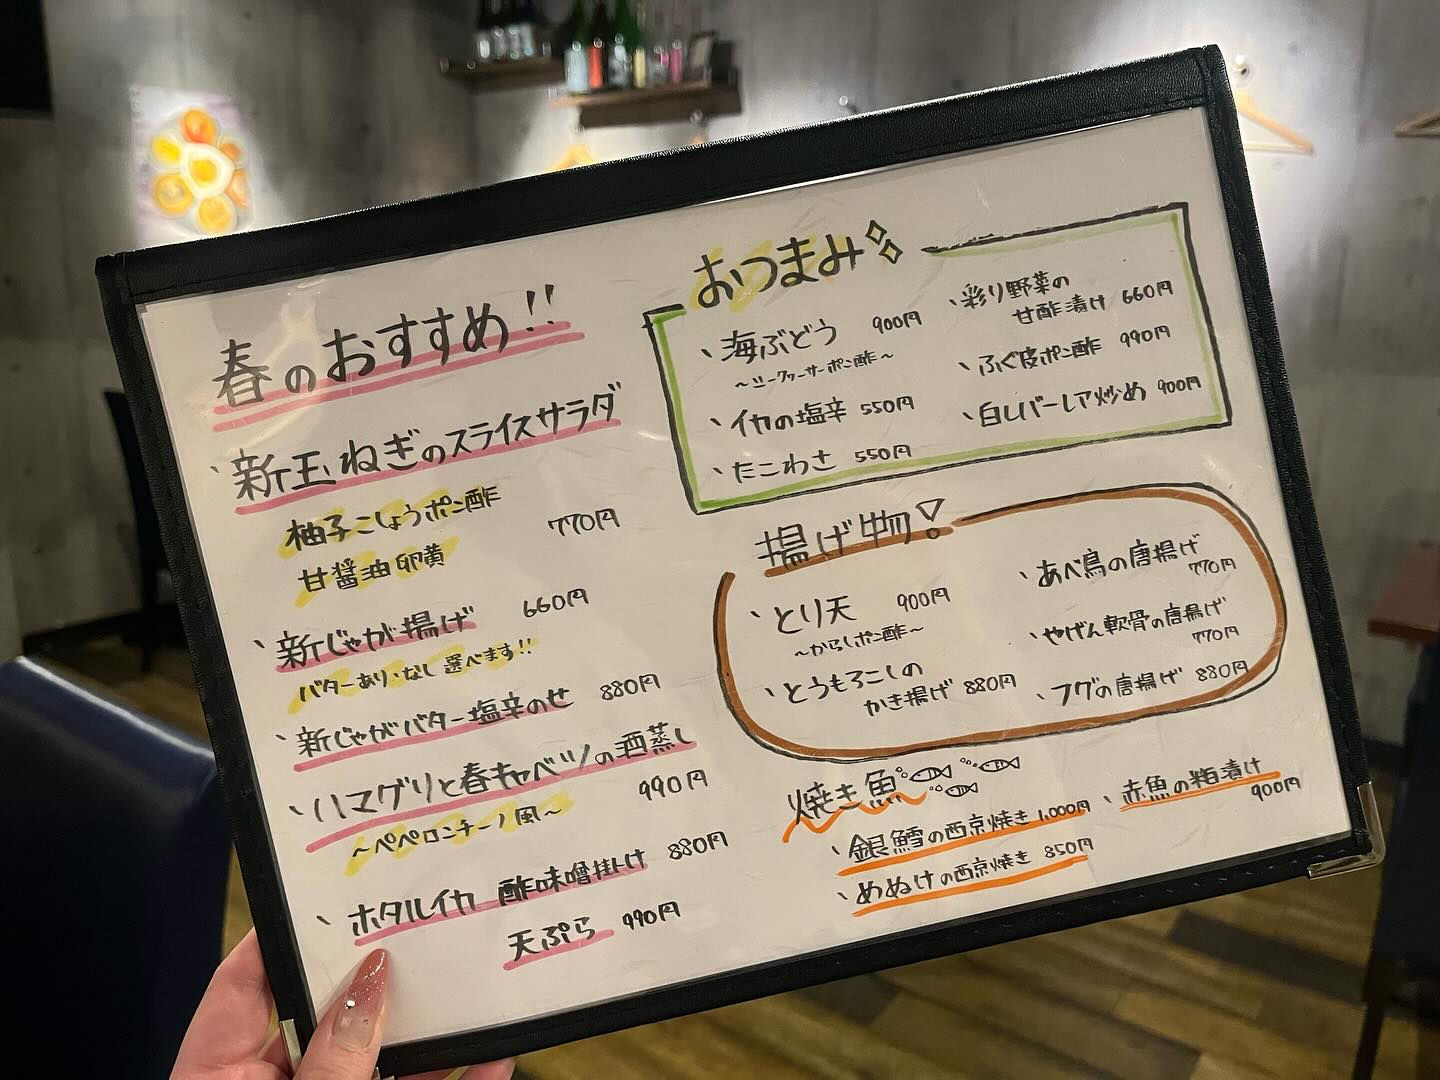 春のおすすめ!!
・新玉ねぎのスライスサラダ
柚子こしょうポン酢
甘醤油卵黄
770円
・新じゃが揚げ 660円
バターあり・なし選べます!!
・新じゃがバター塩辛のせ 880円
・ハマグリと春キャベツの酒蒸し
〜ペペロンチーノ風〜 990円
・ホタルイカ 酢味噌掛け 880円
天ぷら 990円
おつまみ
・海ぶどう 900円
〜シークヮーサーポン酢〜
・イカの塩辛 550円
・たこわさ 550円
・彩り野菜の
甘酢漬け 660円
・ふぐ皮ポン酢 990円
・白レバーレア炒め 900円
揚げ物!
・とり天 900円
〜からしポン酢〜
・とうもろこしの
かき揚げ 880円
・あべ鳥の唐揚げ
770円
・やげん軟骨の唐揚げ
770円
・フグの唐揚げ 880円
焼き魚
・銀鱈の西京焼き 1,000円
・めぬけの西京焼き 850円
・赤魚の粕漬け
900円